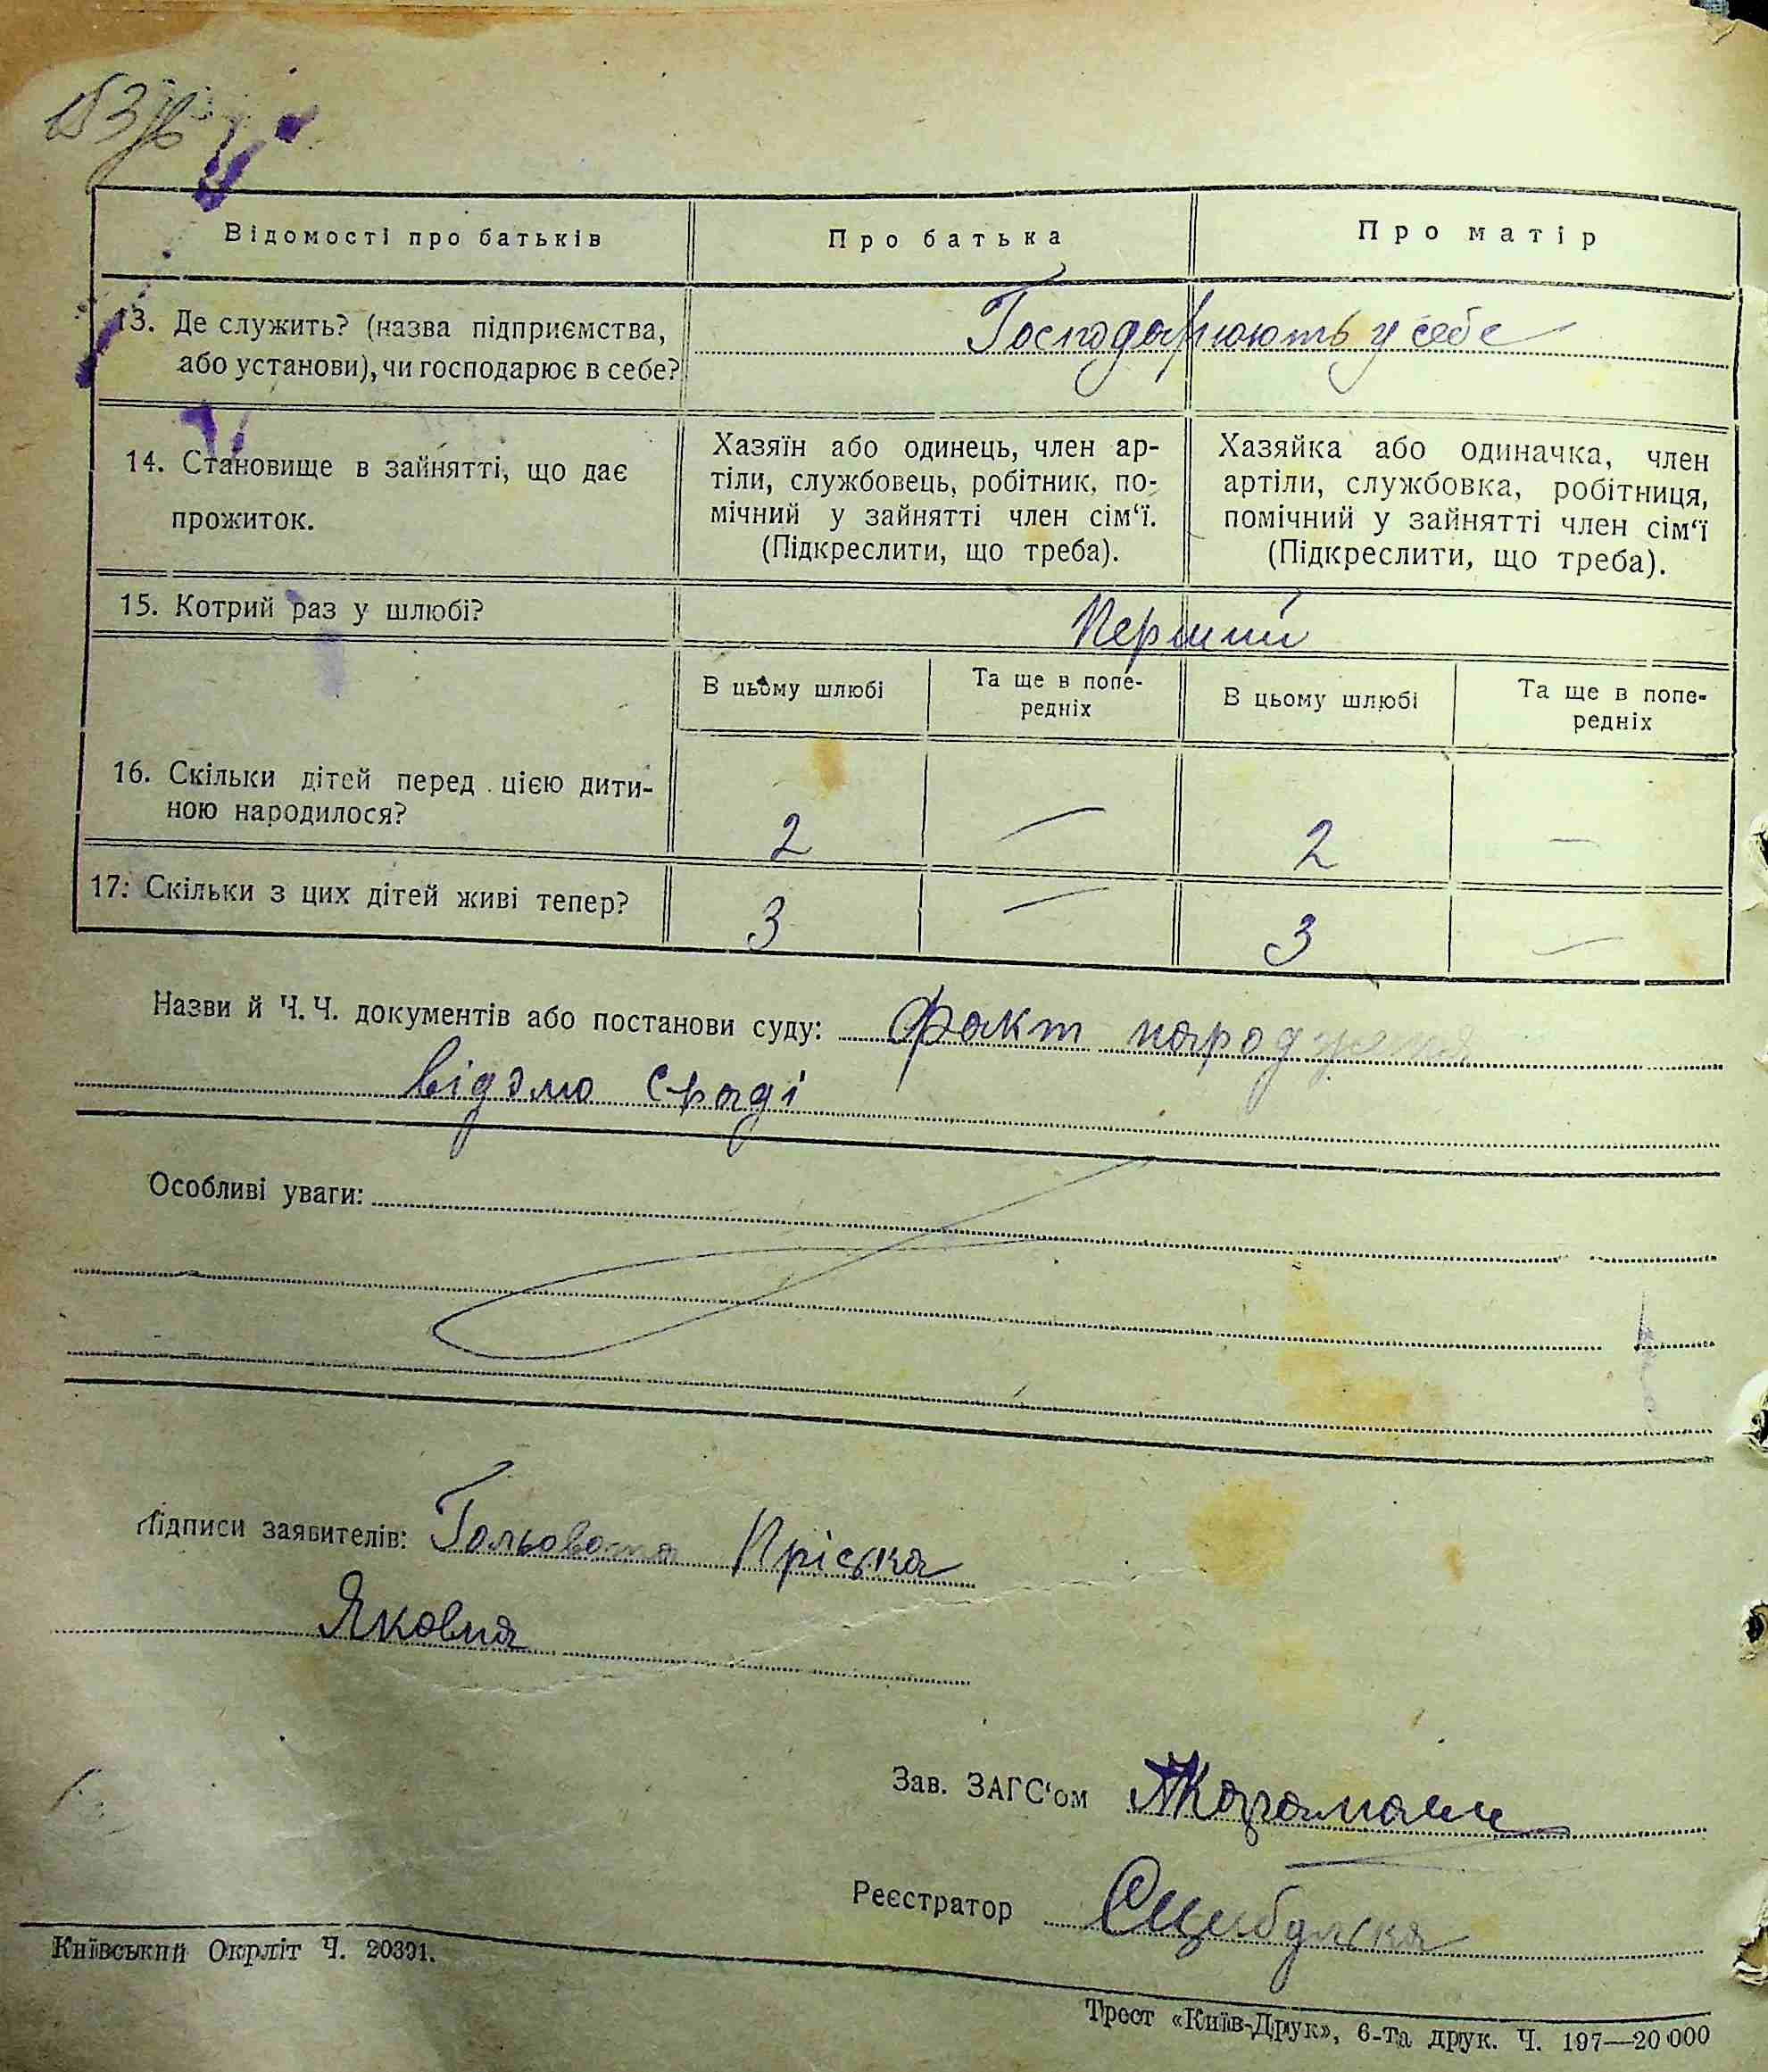 Відомості про батьків
Про батька
Про матір
13. Де служить? (назва підприємства,
або установи), чи господарює в себе?
Господарюють у себе
14. Становище в зайнятті, що дає
прожиток.
Хазяїн або одинець, член ар-
тіли, службовець, робітник, по-
мічний у зайнятті член сім‘ї.
(Підкреслити, що треба).
Хазяйка або одиначка, член
артіли, службовка, робітниця,
помічний у зайнятті член сім‘ї
(Підкреслити, що треба).
15. Котрий раз у шлюбі?
Перший
В цьому шлюбі
Та ще в попе-
редніх
В цьому шлюбі
Та ще в попе-
редніх
16. Скільки дітей перед цією дити-
ною народилося?
2 — 2 —
17. Скільки з цих дітей живі тепер?
3 — 3 —
Назви й Ч. Ч. документів або постанови суду: Факт народження
відомо
Особливі уваги:
Підписи заявителів: Пріська
Яковна
Зав. ЗАГС‘ом
Реєстратор
Київський Окрліт Ч. 20391.
Трест «Київ-Друк», 6-та друк. Ч. 197—20 000